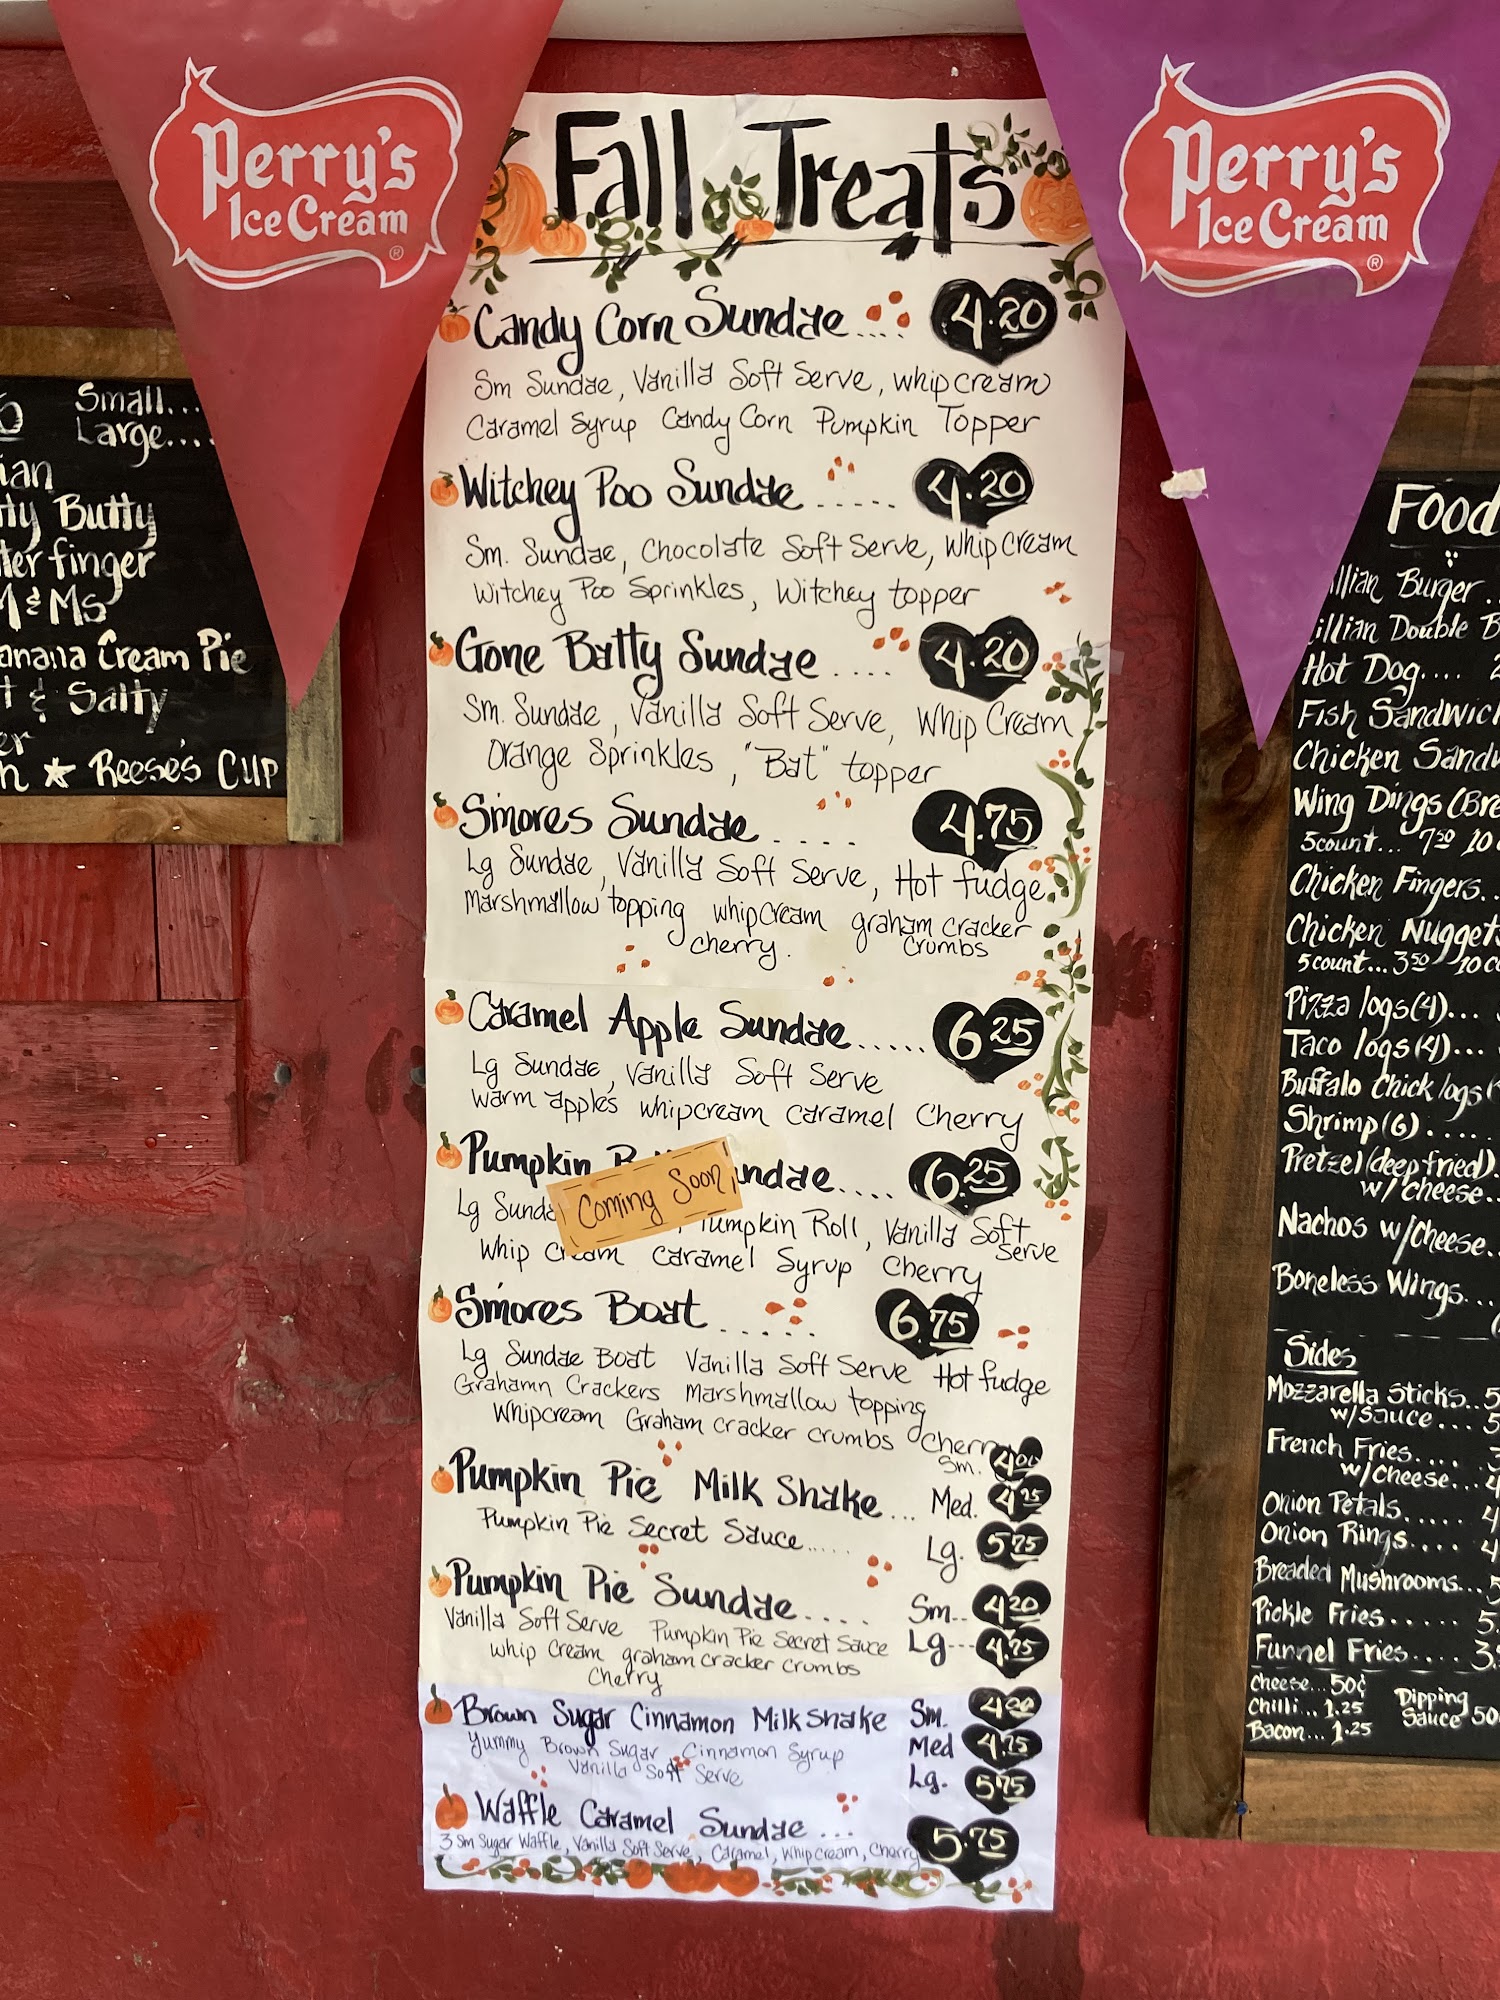 Perry's
Ice Cream
®
Perry's
Ice Cream
®
Fall Treats
Candy Corn Sundae.... 4.20
Sm Sundae, Vanilla Soft Serve, whipcream
Caramel Syrup Candy Corn Pumpkin Topper
Witchey Poo Sundae ..... 4.20
Sm. Sundae, Chocolate Soft Serve, Whip Cream
Witchey Poo Sprinkles, Witchey topper
Gone Batty Sundae .... 4.20
Sm. Sundae, Vanilla Soft Serve, Whip Cream
Orange Sprinkles, "Bat" topper
S'mores Sundae .... 4.75
Lg Sundae, Vanilla Soft Serve, Hot fudge
Marshmallow topping whipcream graham cracker
cherry. crumbs
Caramel Apple Sundae..... 6.25
Lg Sundae, Vanilla Soft Serve
warm apples whipcream caramel Cherry
Pumpkin Sundae.... 6.25
Coming Soon
Lg Sundae Pumpkin Roll, Vanilla Soft
Serve
Whip Cream Caramel Syrup Cherry
S'mores Boat ..... 6.75
Lg Sundae Boat Vanilla Soft Serve Hot fudge
Grahamn Crackers Marshmallow topping
Whipcream Graham cracker crumbs Cherry
Sm. 4.00
Pumpkin Pie Milk Shake... Med. 4.25
Pumpkin Pie Secret Sauce.....
Lg. 5.75
Pumpkin Pie Sundae.... Sm.. 4.20
Vanilla Soft Serve Pumpkin Pie Secret Sauce Lg--- 4.75
whip cream graham cracker crumbs
Cherry
Brown Sugar Cinnamon Milkshake Sm.
Yummy Brown Sugar Cinnamon Syrup Med 4.75
Vanilla Soft Serve
Lg. 5.75
Waffle Caramel Sundae ... 5.75
3 Sm Sugar Waffle, Vanilla Soft Serve, Caramel, Whipcream, Cherry
Small...
Large....
Butty
finger
& Ms
Cream Pie
& Salty
★ Reese's Cup
Food
Burger..
Double B
Hot Dog....
Fish Sandwich
Chicken Sandw
Wing Dings (Bre
5 count... 7.50 10
Chicken Fingers..
Chicken Nuggets
5 count...3.50 10 c
Pizza logs(4)...
Taco logs(4)...
Buffalo Chick logs(
Shrimp(6).....
Pretzel (deep fried).
w/cheese..
Nachos w/Cheese..
Boneless Wings...
Sides
Mozzarella Sticks..5
w/sauce...5
French Fries....
w/cheese...4
Onion Petals.....4
Onion Rings....4
Breaded Mushrooms...5
Pickle Fries.....5.
Funnel Fries....3.
Cheese...50¢
Chilli...1.25
Bacon...1.25
Dipping
Sauce 50